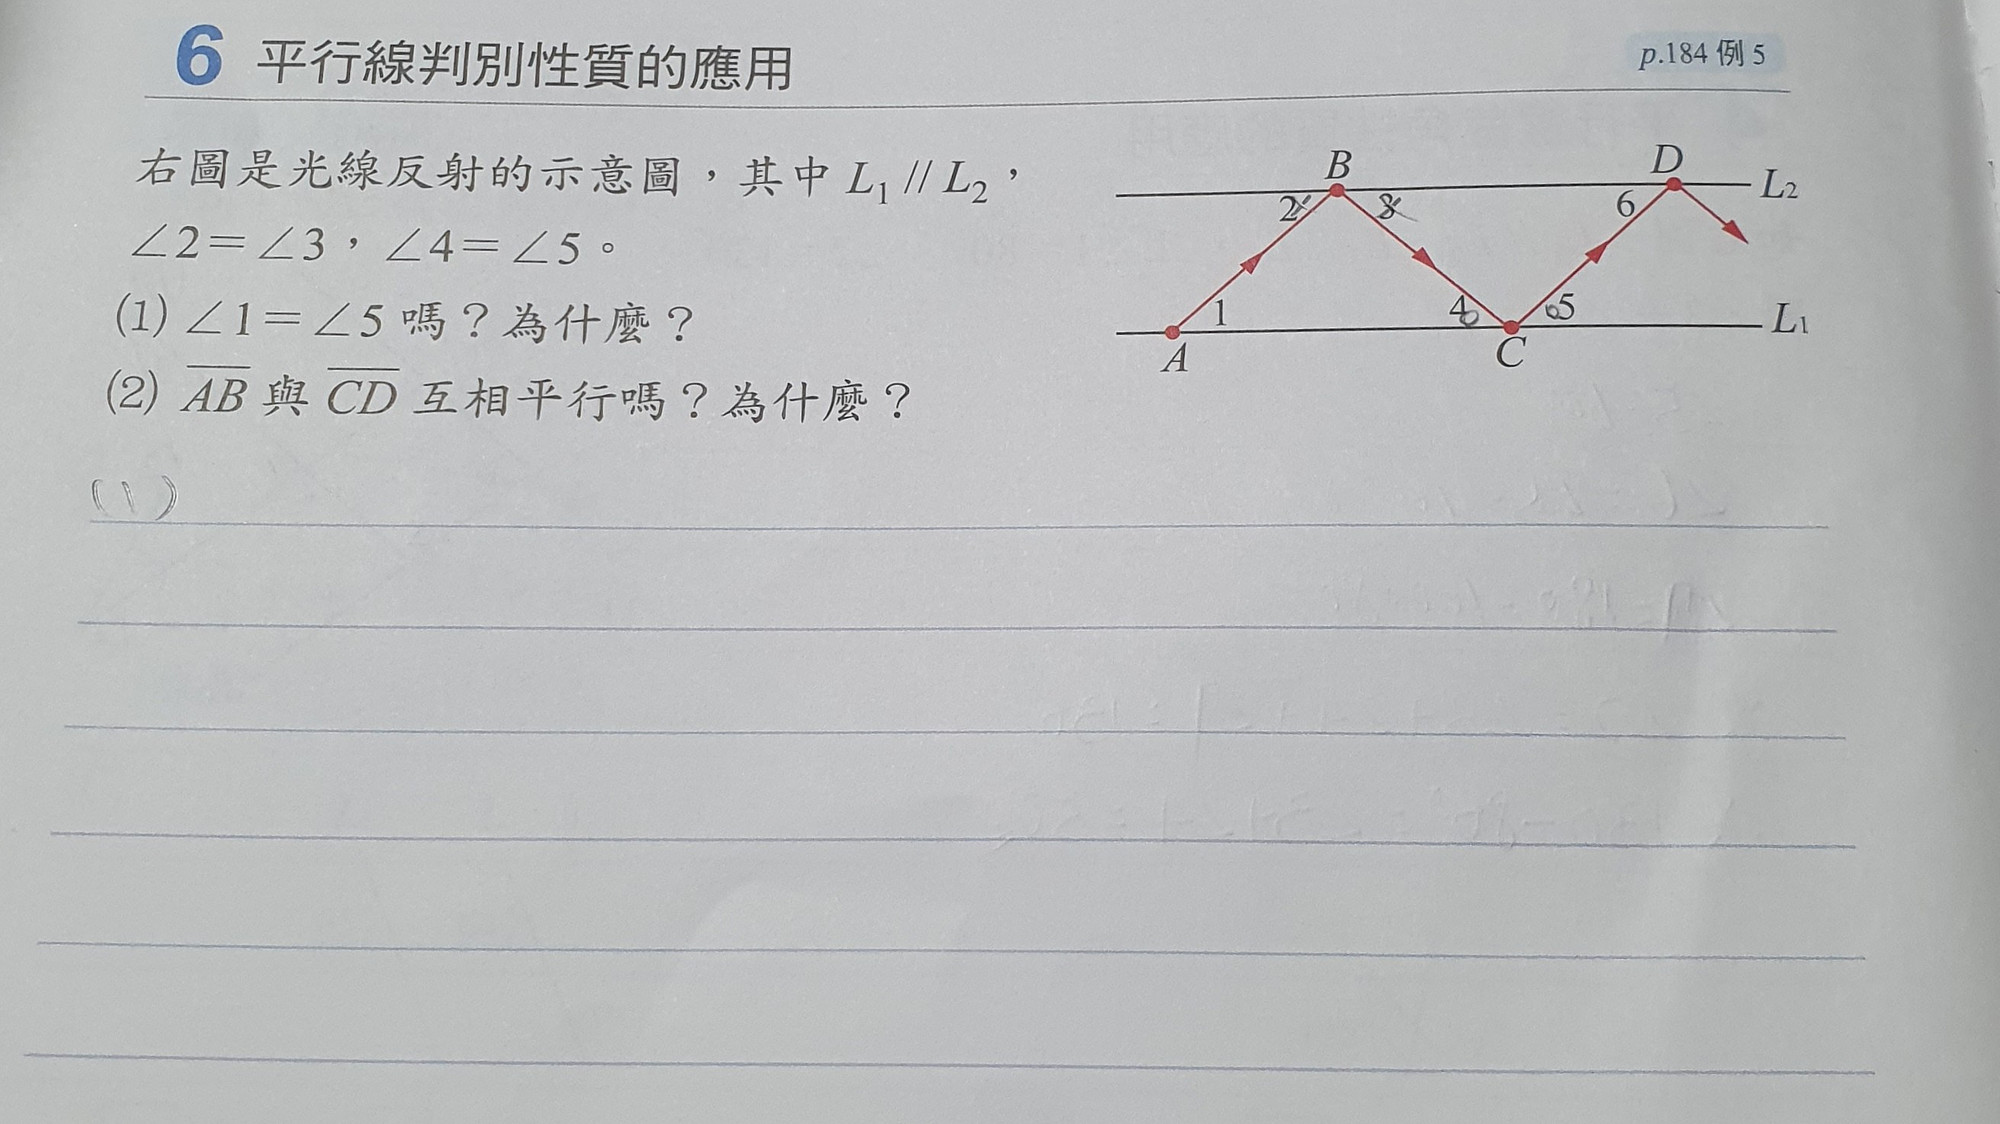 6 平行線判別性質的應用
p.184 例 5
右圖是光線反射的示意圖，其中 L₁ // L₂，
∠2＝∠3，∠4＝∠5。
(1) ∠1＝∠5 嗎？為什麼？
(2) AB 與 CD 互相平行嗎？為什麼？
B D L₂
2 3 6
1 4 5 L₁
A C
(1)